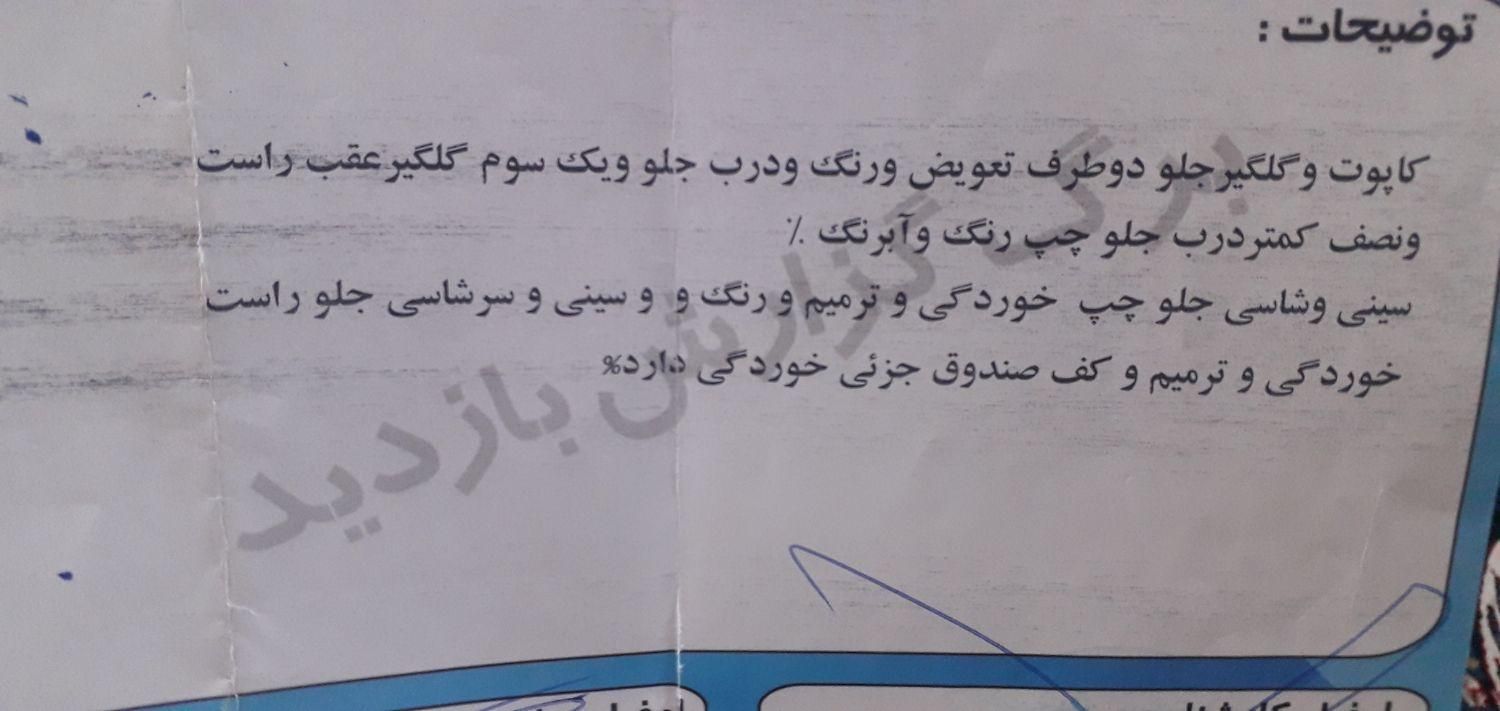 توضیحات :
کاپوت وگلگیرجلو دوطرف تعویض ورنگ ودرب جلو ویک سوم گلگیرعقب راست
ونصف کمتردرب جلو چپ رنگ وآبرنگ ٪
سینی وشاسی جلو چپ خوردگی و ترمیم و رنگ و و سینی و سرشاسی جلو راست
خوردگی و ترمیم و کف صندوق جزئی خوردگی دارد%
برگ گزارش بازدید